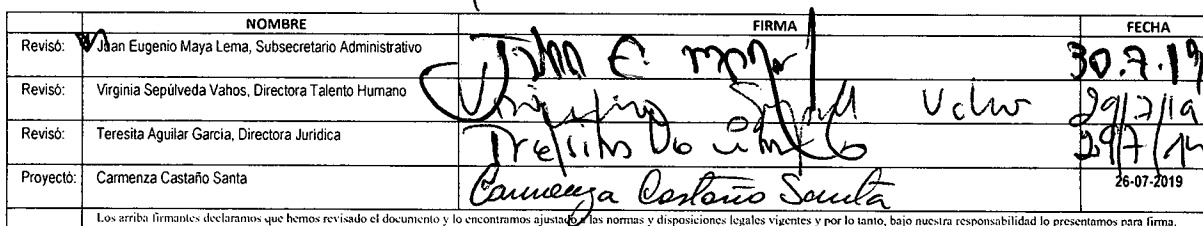 NOMBRE FIRMA FECHA
Revisó: Juan Eugenio Maya Lema, Subsecretario Administrativo 30.7.19
Revisó: Virginia Sepúlveda Vahos, Directora Talento Humano 29/7/19
Revisó: Teresita Aguilar Garcia, Directora Juridica 29/7/19
Proyectó: Carmenza Castaño Santa Carmenza Castaño Santa 26-07-2019
Los arriba firmantes declaramos que hemos revisado el documento y lo encontramos ajustado a las normas y disposiciones legales vigentes y por lo tanto, bajo nuestra responsabilidad lo presentamos para firma.